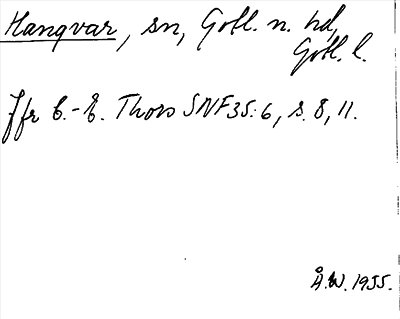 Hangvar, sn, Gotl. n. hd,
Gotl. l.
Jfr C.-E. Thors SNF 35:6, s. 8, 11.
Å.W. 1955.